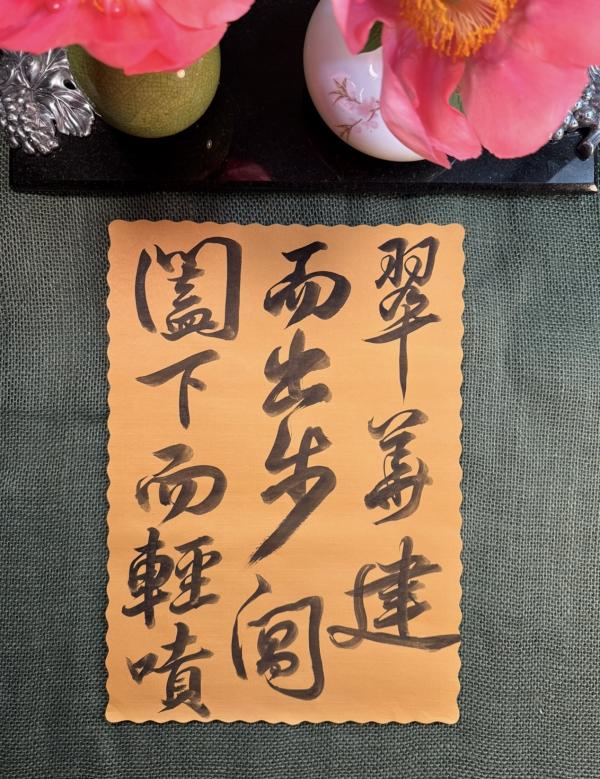 翠華建
而出步閶
闔下而輕噴